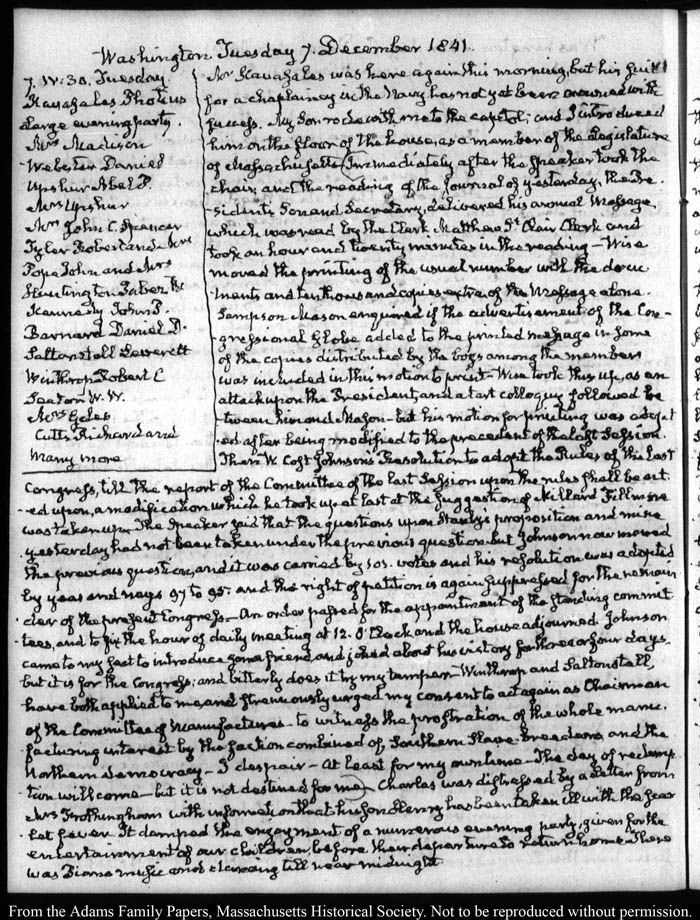 Washington Tuesday 7. December 1841.
7. IV:30. Tuesday.
Kavasales Photius
Large evening party.
Mrs Madison
Webster Daniel
Upshur Abel P.
Mrs Upshur
Mrs John C. Spencer
Tyler Robert and Mrs
Pope John and Mrs
Huntington Jabez W.
Kennedy John P.
Barnard Daniel D.
Saltonstall Leverett
Winthrop Robert C
Seaton W. W.
Mrs Gales
Cutts Richard and
Many more
Mr Kavasales was here again this morning, but his suit
for a chaplaincy in the Navy has not yet been crowned with
success. My Son rode with me to the capitol; and I introduced
him on the floor of the house, as a member of the Legislature
of Massachusetts. Immediately after the Speaker took the
chair, and the reading of the Journal of yesterday, the Pre-
sident's Son and Secretary, delivered his annual Message,
which was read by the Clerk Matthew St. Clair Clark and
took an hour and twenty minutes in the reading — Wise
moved the printing of the usual number with the docu-
ments and ten thousand copies extra, of the Message alone.
Sampson Mason enquired if the advertisement of the Con-
gressional Globe added to the printed message in some
of the copies distributed by the boys among the members
was included in this motion to print — Wise took this up, as an
attack upon the President, and a tart colloquy followed be
tween him and Mason — but his motion for printing was adopt
ed after being modified to the precedent of the last Session.
Then W. Cost Johnson's Resolution to adopt the Rules of the last
Congress, till the report of the Committee of the last Session upon the rules shall be act-
ed upon, a modification which he took up at last at the suggestion of Millard Fillmore
was taken up. The Speaker said that the questions upon Stanly's proposition and mine
yesterday had not been taken under the previous question — but Johnson now moved
the previous question, and it was carried by 101. votes and his resolution was adopted
by yeas and nays 97 to 95. and the right of petition is again suppressed for the remain
der of the present Congress — An order passed for the appointment of the standing commit
tees, and to fix the hour of daily meeting at 12. O'Clock and the house adjourned. Johnson
came to my seat to introduce some friend, and joked about his victory for three or four days.
but it is for the Congress: and bitterly does it try my temper — Winthrop and Saltonstall,
have both applied to me, and strenuously urged my consent to act again as Chairman
of the Committee of Manufactures — to witness the prostration of the whole manu-
facturing interest by the faction combined of, Southern Slave-breeders, and the
Northern Democracy — I despair — At least for my own time — The day of redemp
tion will come — but it is not destined for me. Charles was distressed by a Letter from
Mrs Frothingham with information that his Son Henry has been taken ill with the scar
let fever. It damped the enjoyment of a numerous evening party, given for the
entertainment of our children, before their departure to return home. There
was Piano music and dancing till near midnight.
From the Adams Family Papers, Massachusetts Historical Society. Not to be reproduced without permission.